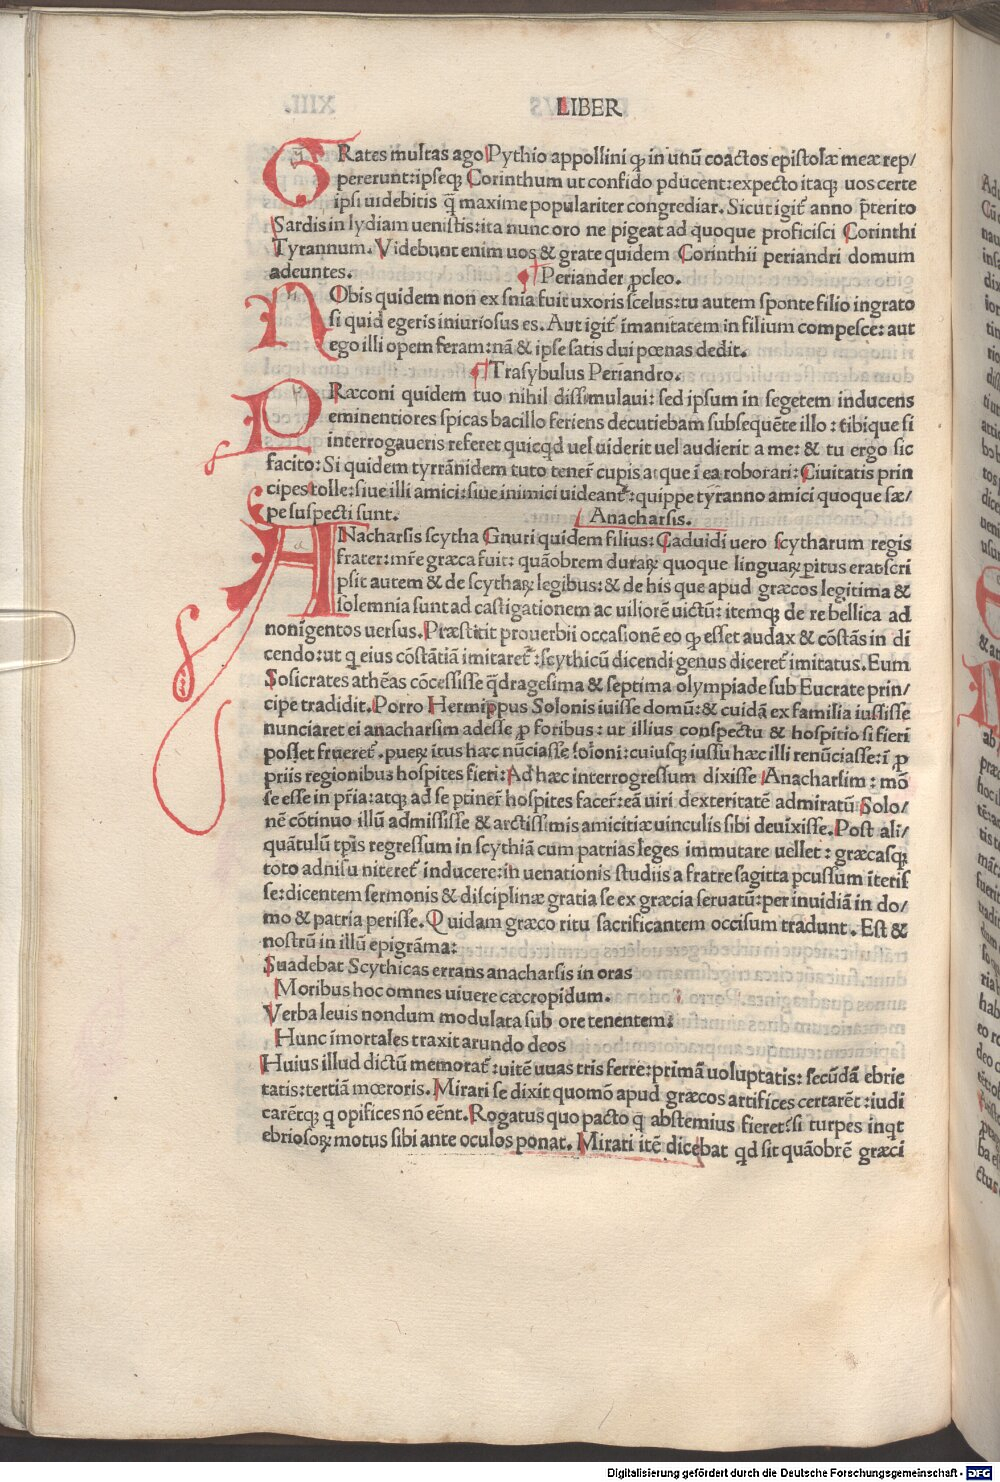 LIBER
GRates multas ago Pythio appollini ꝙ in unū coactos epistolæ meæ rep/
pererunt: ipseqꝫ Corinthum ut confido ꝓducent: expecto itaqꝫ uos certe
ipsi uidebitis q̄ maxime populariter congrediar. Sicut igit̄ anno p̄terito
Sardis in lydiam uenistis: ita nunc oro ne pigeat ad quoque proficisci Corinthi
Tyrannum. Videbunt enim uos & grate quidem Corinthii periandri domum
adeuntes.
Periander ꝓcleo.
NObis quidem non ex s̄nia fuit uxoris scelus: tu autem sponte filio ingrato
si quid egeris iniuriosus es. Aut igit̄ īmanitatem in filium compesce: aut
ego illi opem feram: nā & ipse satis dui pœnas dedit.
Trasybulus Periandro.
PRæconi quidem tuo nihil dissimulaui: sed ipsum in segetem inducens
eminentiores spicas bacillo feriens decutiebam subsequēte illo: tibique si
interrogaueris referet quicqd uel uiderit uel audierit a me: & tu ergo sic
facito: Si quidem tyrrānidem tuto tener̄ cupis atque ī ea roborari: Ciuitatis prin
cipes tolle: siue illi amici: siue inimici uideant̄: quippe tyranno amici quoque sæ/
pe suspecti sunt.
Anacharsis.
ANacharsis scytha Gnuri quidem filius: Caduidi uero scytharum regis
frater: mr̄e græca fuit: quāobrem duraꝝ quoque linguaꝝ ꝑitus erat: scri
psit autem & de scythaꝝ legibus: & de his que apud græcos legitima &
solemnia sunt ad castigationem ac uiliorē uictū: itemqꝫ de re bellica ad
nonīgentos uersus. Præstitit prouerbii occasionē eo ꝙ esset audax & cōstās in di
cendo: ut q̄ eius cōstātiā imitaret̄: scythicū dicendi genus diceret̄ imitatus. Eum
Sosicrates athēas cōcessisse q̄dragesima & septima olympiade sub Eucrate prin/
cipe tradidit. Porro Hermippus Solonis iuisse domū: & cuidā ex familia iussisse
nunciaret ei anacharsim adesse ꝓ foribus: ut illius conspectu & hospitio si fieri
posset frueret̄. pueꝝ itus hæc nūciasse soloni: cuiusqꝫ iussu hæc illi renūciasse: ī ꝓ
priis regionibus hospites fieri: Ad hæc interrogressum dixisse Anacharsim: mō
se esse in pr̄ia: atqꝫ ad se ꝑtiner̄ hospites facer̄: eā uiri dexteritatē admiratū Solo/
nē cōtinuo illū admisisse & arctissimis amicitiæ uinculis sibi deuixisse. Post ali/
quātulū tp̄is regressum in scythiā cum patrias leges immutare uellet: græcasqꝫ
toto adnisu niteret̄ inducere: in uenationis studiis a fratre sagitta ꝑcussum īteris
se: dicentem sermonis & disciplinæ gratia se ex græcia seruatū: per inuidiā in do/
mo & patria perisse. Quidam græco ritu sacrificantem occisum tradunt. Est &
nostrū in illū epigrāma:
Suadebat Scythicas errans anacharsis in oras
Moribus hoc omnes uiuere cæcropidum.
Verba leuis nondum modulata sub ore tenentem:
Hunc īmortales traxit arundo deos
Huius illud dictū memorat̄: uitē uuas tris ferre: primā uoluptatis: secūdā ebrie
tatis: tertiā mœroris. Mirari se dixit quomō apud græcos artifices certarēt: iudi
carētqꝫ q opifices nō eēnt. Rogatus quo pacto q̄ abstemius fieret: si turpes inqt
ebriosoꝝ motus sibi ante oculos ponat. Mirati itē dicebat qd sit quāobrē græci
Digitalisierung gefördert durch die Deutsche Forschungsgemeinschaft - DFG